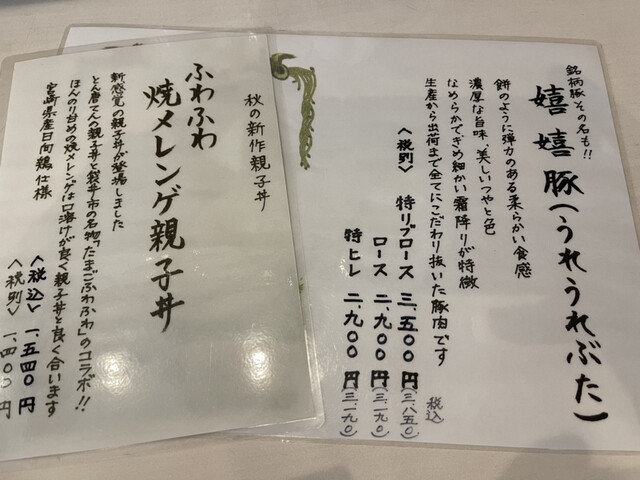 銘柄豚その名も!!
嬉嬉豚(うれうれぶた)
餅のように弾力のある柔らかい食感
濃厚な旨味、美しいつやと色
なめらかできめ細かい霜降りが特徴
生産から出荷まで全てにこだわり抜いた豚肉です
〈税別〉 税込
特リブロース 三、五〇〇円(三、八五〇)
ロース 二、九〇〇円(三、一九〇)
特ヒレ 二、九〇〇円(三、一九〇)
秋の新作親子丼
ふわふわ
焼メレンゲ親子丼
新感覚の親子丼が登場しました
とん唐てんの親子丼と袋井市の名物「たまごふわふわ」のコラボ!!
ほんのり甘めの焼メレンゲは口溶けが良く親子丼と良く合います
宮崎県産日向鶏仕様
〈税込〉 一、五四〇円
〈税別〉 一、四〇〇円